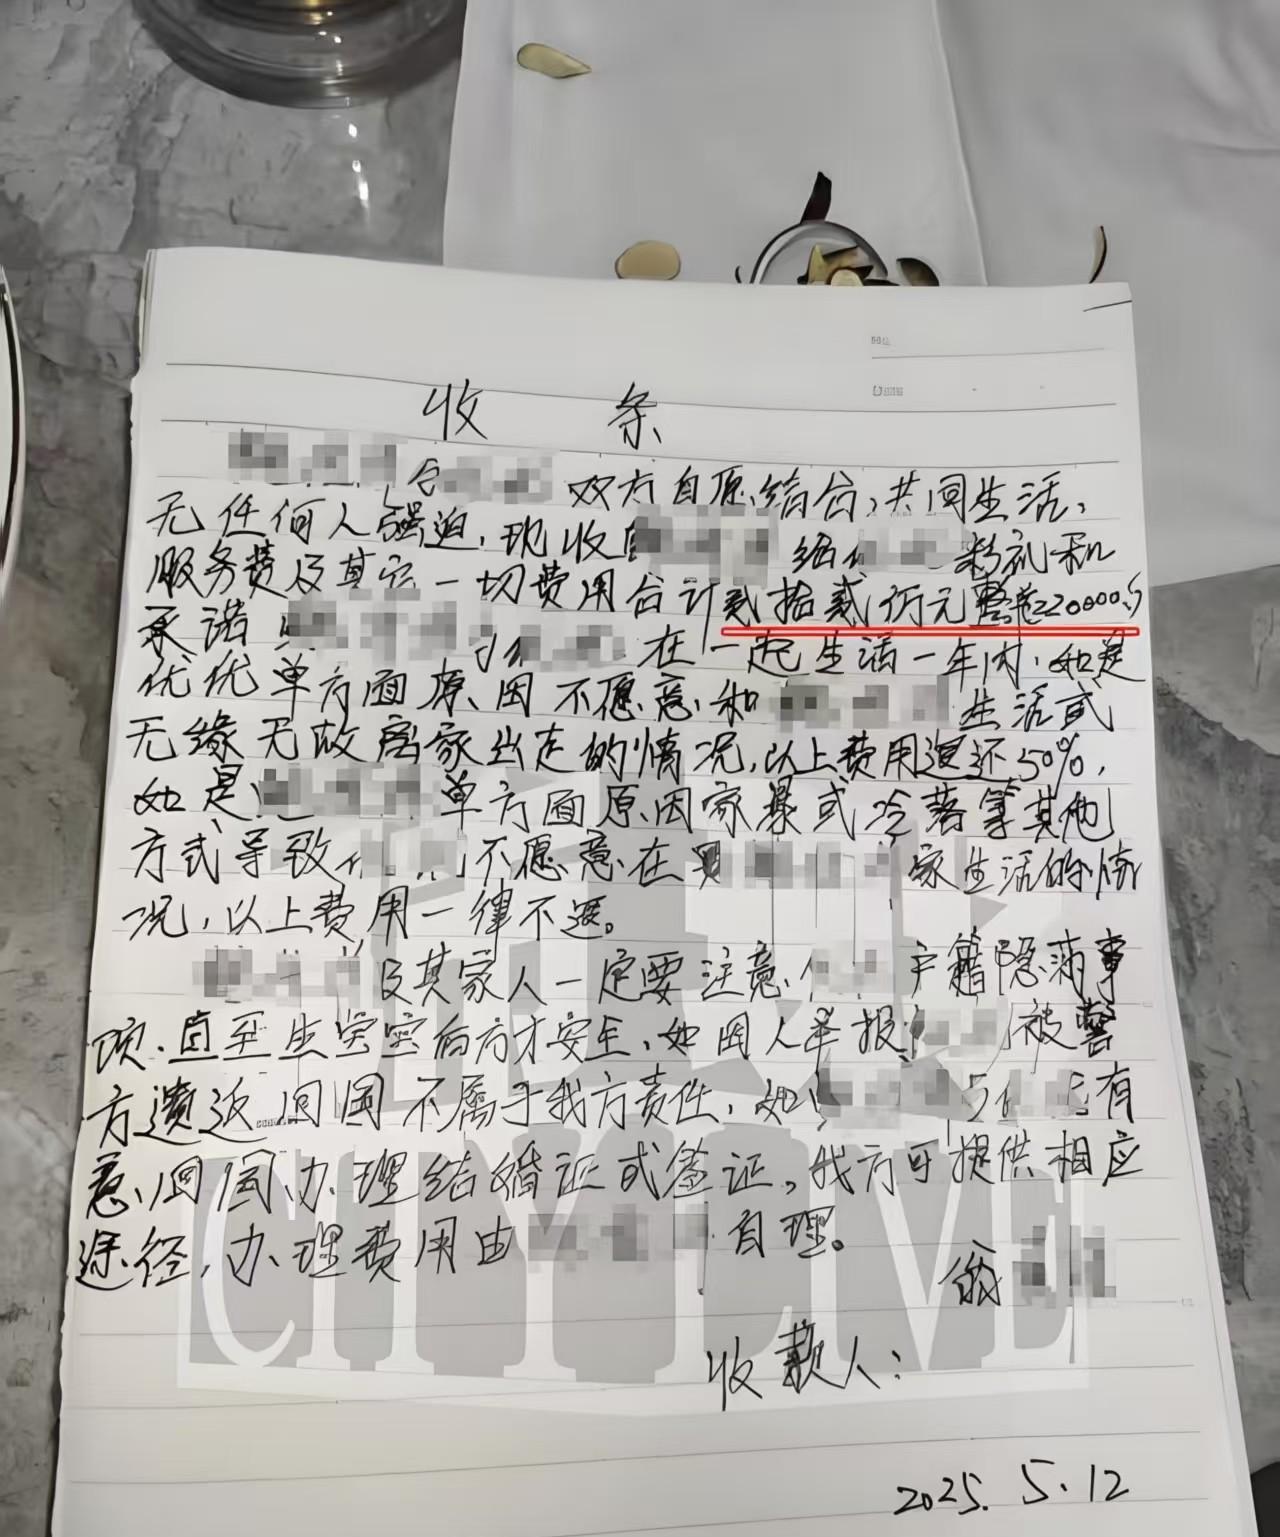 收条
双方自愿结合,共同生活,
无任何人强迫,现收 给 彩礼和
服务费及其它一切费用合计贰拾贰仟元整 ¥220000
承诺 在一起生活一年内,如是
优优单方面原因不愿意和 生活或
无缘无故离家出走的情况,以上费用退还50%,
如是 单方面原因家暴或冷落等其他
方式导致 不愿意在 家生活的情
况,以上费用一律不退。
及其家人一定要注意 户籍隐满事
项,直至生宝宝后方才安全,如因人举报 被警
方遗返回国不属于我方责任,如 有
意回国办理结婚证或签证,我方可提供相应
途径,办理费用由 自理。
翁
收款人:
2025.5.12
CITYLIVE